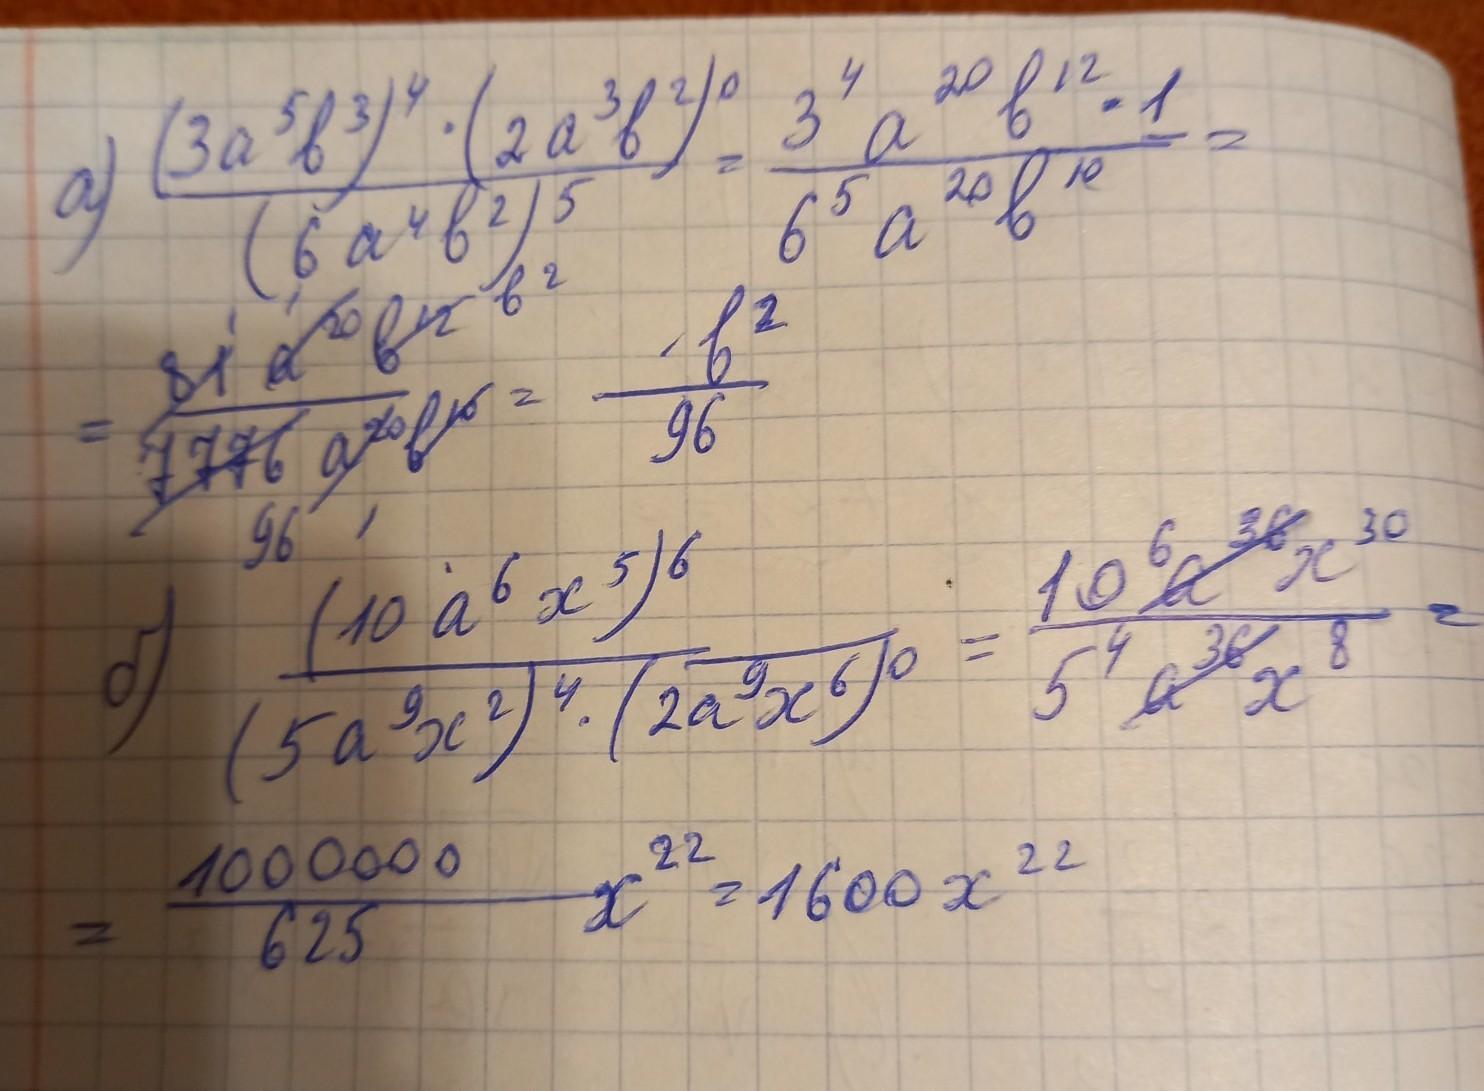 а) (3a⁵b³)⁴ · (2a³b²)⁰ / (6a⁴b²)⁵ = 3⁴a²⁰b¹² · 1 / 6⁵a²⁰b¹⁰ =
= 81 a²⁰b¹² b² / 7776 a²⁰b¹⁰ 96 = b² / 96
б) (10 a⁶x⁵)⁶ / (5a⁹x²)⁴ · (2a⁹x⁶)⁰ = 10⁶a³⁶x³⁰ / 5⁴a³⁶x⁸ =
= 1000000 / 625 x²² = 1600x²²